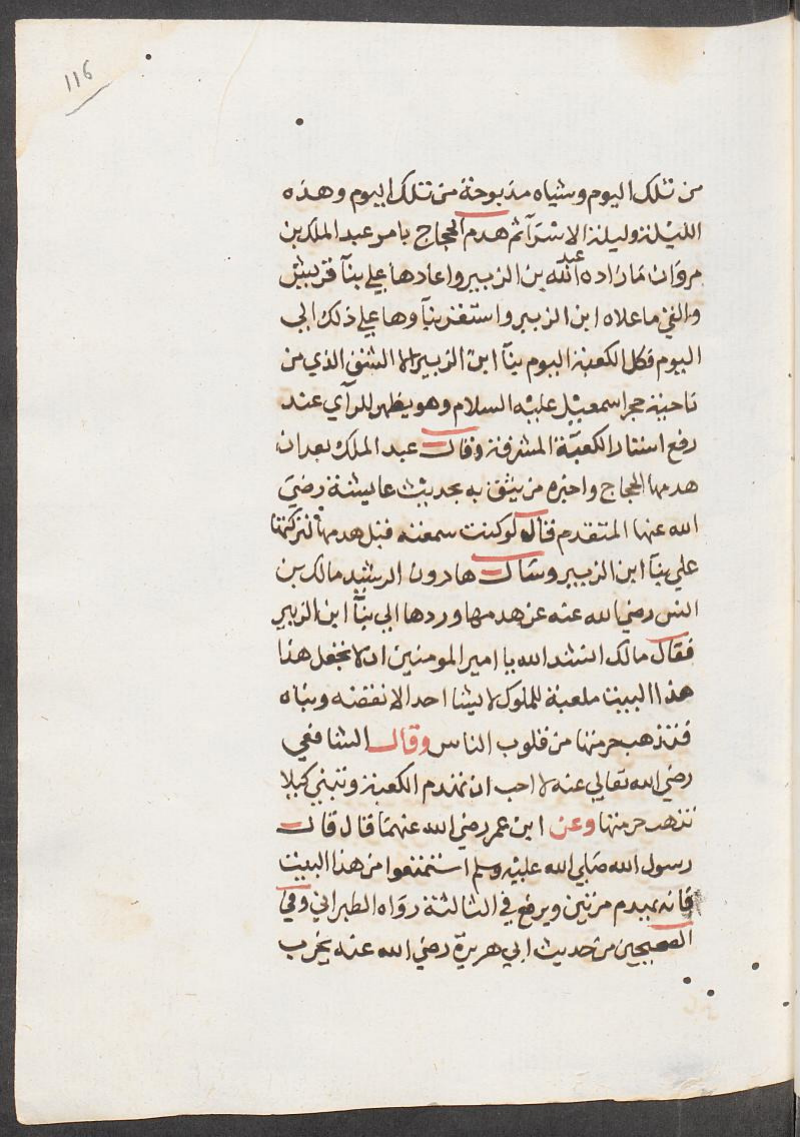 116
من تلك اليوم وشياه مذبوحة من تلك اليوم وهذه
الليلة وليلة الاسرآ ثم هدم الحجاج بامر عبد الملك بن
مروان ما زاده عبد الله بن الزبير واعادها علي بنآ قريش
والذي ما علاه ابن الزبير واستقر بنآوها علي ذلك الي
اليوم فكل الكعبة اليوم بنآ ابن الزبير الا الشق الذي من
ناحية حجر اسمعيل عليه السلام وهو يظهر للرآي عند
رفع استار الكعبة المشرفة وقال عبد الملك بعد ان
هدمها الحجاج واخبره من يثق به بحديث عايشة رضي
الله عنها المتقدم فقال لو كنت سمعته قبل هدمها لتركتها
علي بنآ ابن الزبير وسال هارون الرشيد مالك بن
انس رضي الله عنه عن هدمها وردها الي بنآ ابن الزبير
فقال مالك انشد الله يا امير المومنين ان لا تجعل هذا
هذا البيت ملعبة للملوك لا يشا احد الا نقضه وبناه
فتذهب حرمتها من قلوب الناس وقال الشافعي
رضي الله تعالي عنه لا احب ان تهدم الكعبة وتبني كيلا
تذهب حرمتها وعن ابن عمر رضي الله عنهما قال قال
رسول الله صلي الله عليه وسلم استمتعوا من هذا البيت
فانه يهدم مرتين ويرفع في الثالثة رواه الطبراني وفي
الصحيحين من حديث ابي هريرة رضي الله عنه يخرب